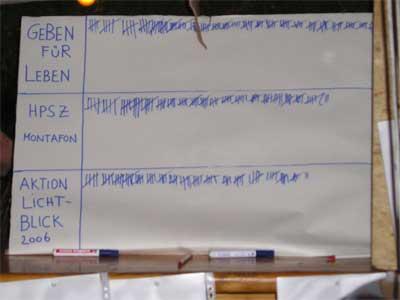 GEBEN
FÜR
LEBEN
HPSZ
MONTAFON
AKTION
LICHT-
BLICK
2006